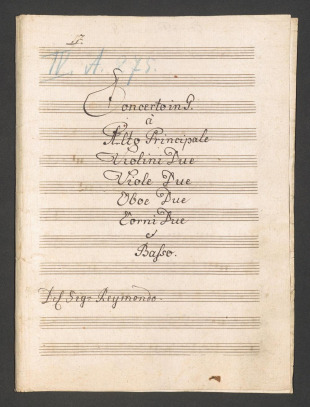 IV. A. 275.
Concerto in
à
Alto Principale
Violini Due
Viole Due
Oboe Due
Corni Due
e
Basso.
Del Sigr Reymondo.